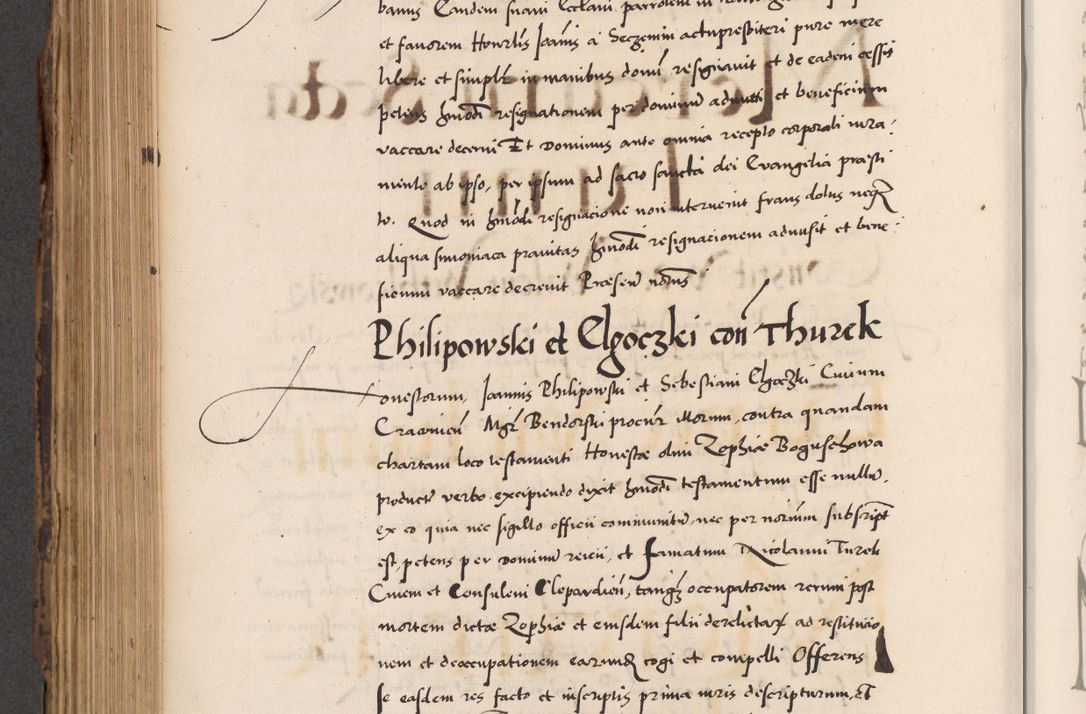 et fauorem Honrlis Joannis a Seczemin actu presbiteri pure mere
libere et simplr in manibus domi resignauit et de eadem cessit
petens hmodi resignationem per dominum admitti et beneficium
vaccare decerni Et Dominus ante omnia recepto corporali iura:
mento ab ipso, per ipsum ad sacro sancta dei Evangelia praesti
to. Quod in hmodi resignacione non interuenit fraus dolus neq
aliqua simoniaca prauitas hmodi resignacionem admisit et bene:
ficium vaccare decreuit Praesen notrus
Philipowski et Elgoczki con Thurek
onestorum Joannis Philipowski et Sebestiani Elgoczki Ciuium
Cracouien Mgr Bendorski procur illorum, contra quandam
chartam loco testamenti Honestae olim Zophiae Boguschowa
product verbo excipiendo dixit hmodi testamentum esse nullum,
ex eo quia nec sigillo officii communitum, nec per notrium subscript
est, petens per Dominum reiici, et famatum Nicolaum Turek
Ciuem et Consulem Clepardien, tanq occupatorem rerum post
mortem dictae Zophiae et eiusdem filii derelictar ad restitucio
nem et deoccupationem earundem cogi et compelli Offerens
se easdem res facto et inscriptis prima iuris descripturum, et